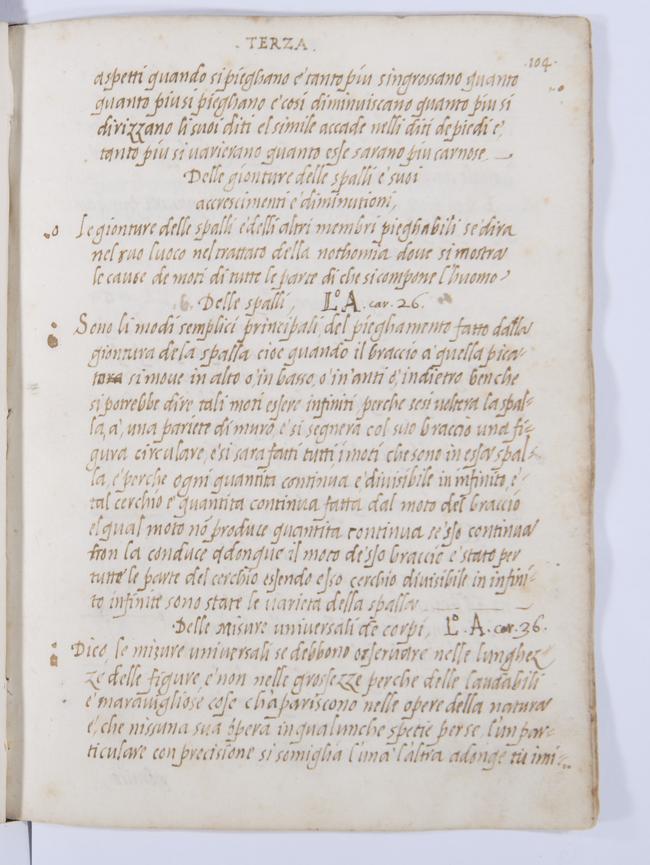 TERZA.
104.
aspetti quando si pieghano e tanto piu s'ingrossano quanto
quanto piu si pieghano e cosi diminuiscano quanto piu si
dirizzano li suoi diti el simile accade nelli diti de piedi e,
tanto piu si varierano quanto esse sarano piu carnose.
Delle gionture delle spalli e suoi
accrescimenti e diminutioni,
Le gionture delle spalli e delli altri membri pieghabili se dira
nel suo luoco nel trattato della nothomia dove si mostra
le cause de moti di tutte le parte di che si compone l'huomo
Delle spalli, Lº A. car. 26.
Sono li modi semplici principali, del pieghamento fatto dalla
giontura de la spalla cioe quando il braccio a quella pica-
to si move in alto o, in basso, o in'anti o, indietro benche
si potrebbe dire, tali moti essere infiniti, perche se si voltera la spal-
la, a, una pariete di muro, e si segnera col suo braccio una fi-
gura circulare, e si sara fatti tutti, i moti che sono in essa spal-
la, e perche ogni quantita continua e, divisibile in infinito, e-
tal cerchio e quantita continua fatta dal moto del braccio
el qual moto nō produce quantita continua se esso continua
tion la conduce adonque il moto d'esso braccio e stato per
tutte le parte del cerchio essendo esso cerchio divisibile in infini-
to infinite sono state le varieta della spalla
Delle misure universali de corpi, Lº. A. car. 36.
Dico, le misure universali se debbono osservare nelle lunghez
ze delle figure, e non nelle grossezze perche delle laudabili
e maravigliose cose ch'apariscono nelle opere della natura
e, che nissuna sua opera in qualunche spetie per se, l'un par-
ticulare con precisione si somiglia l'una l'altra adonqe tu imi-